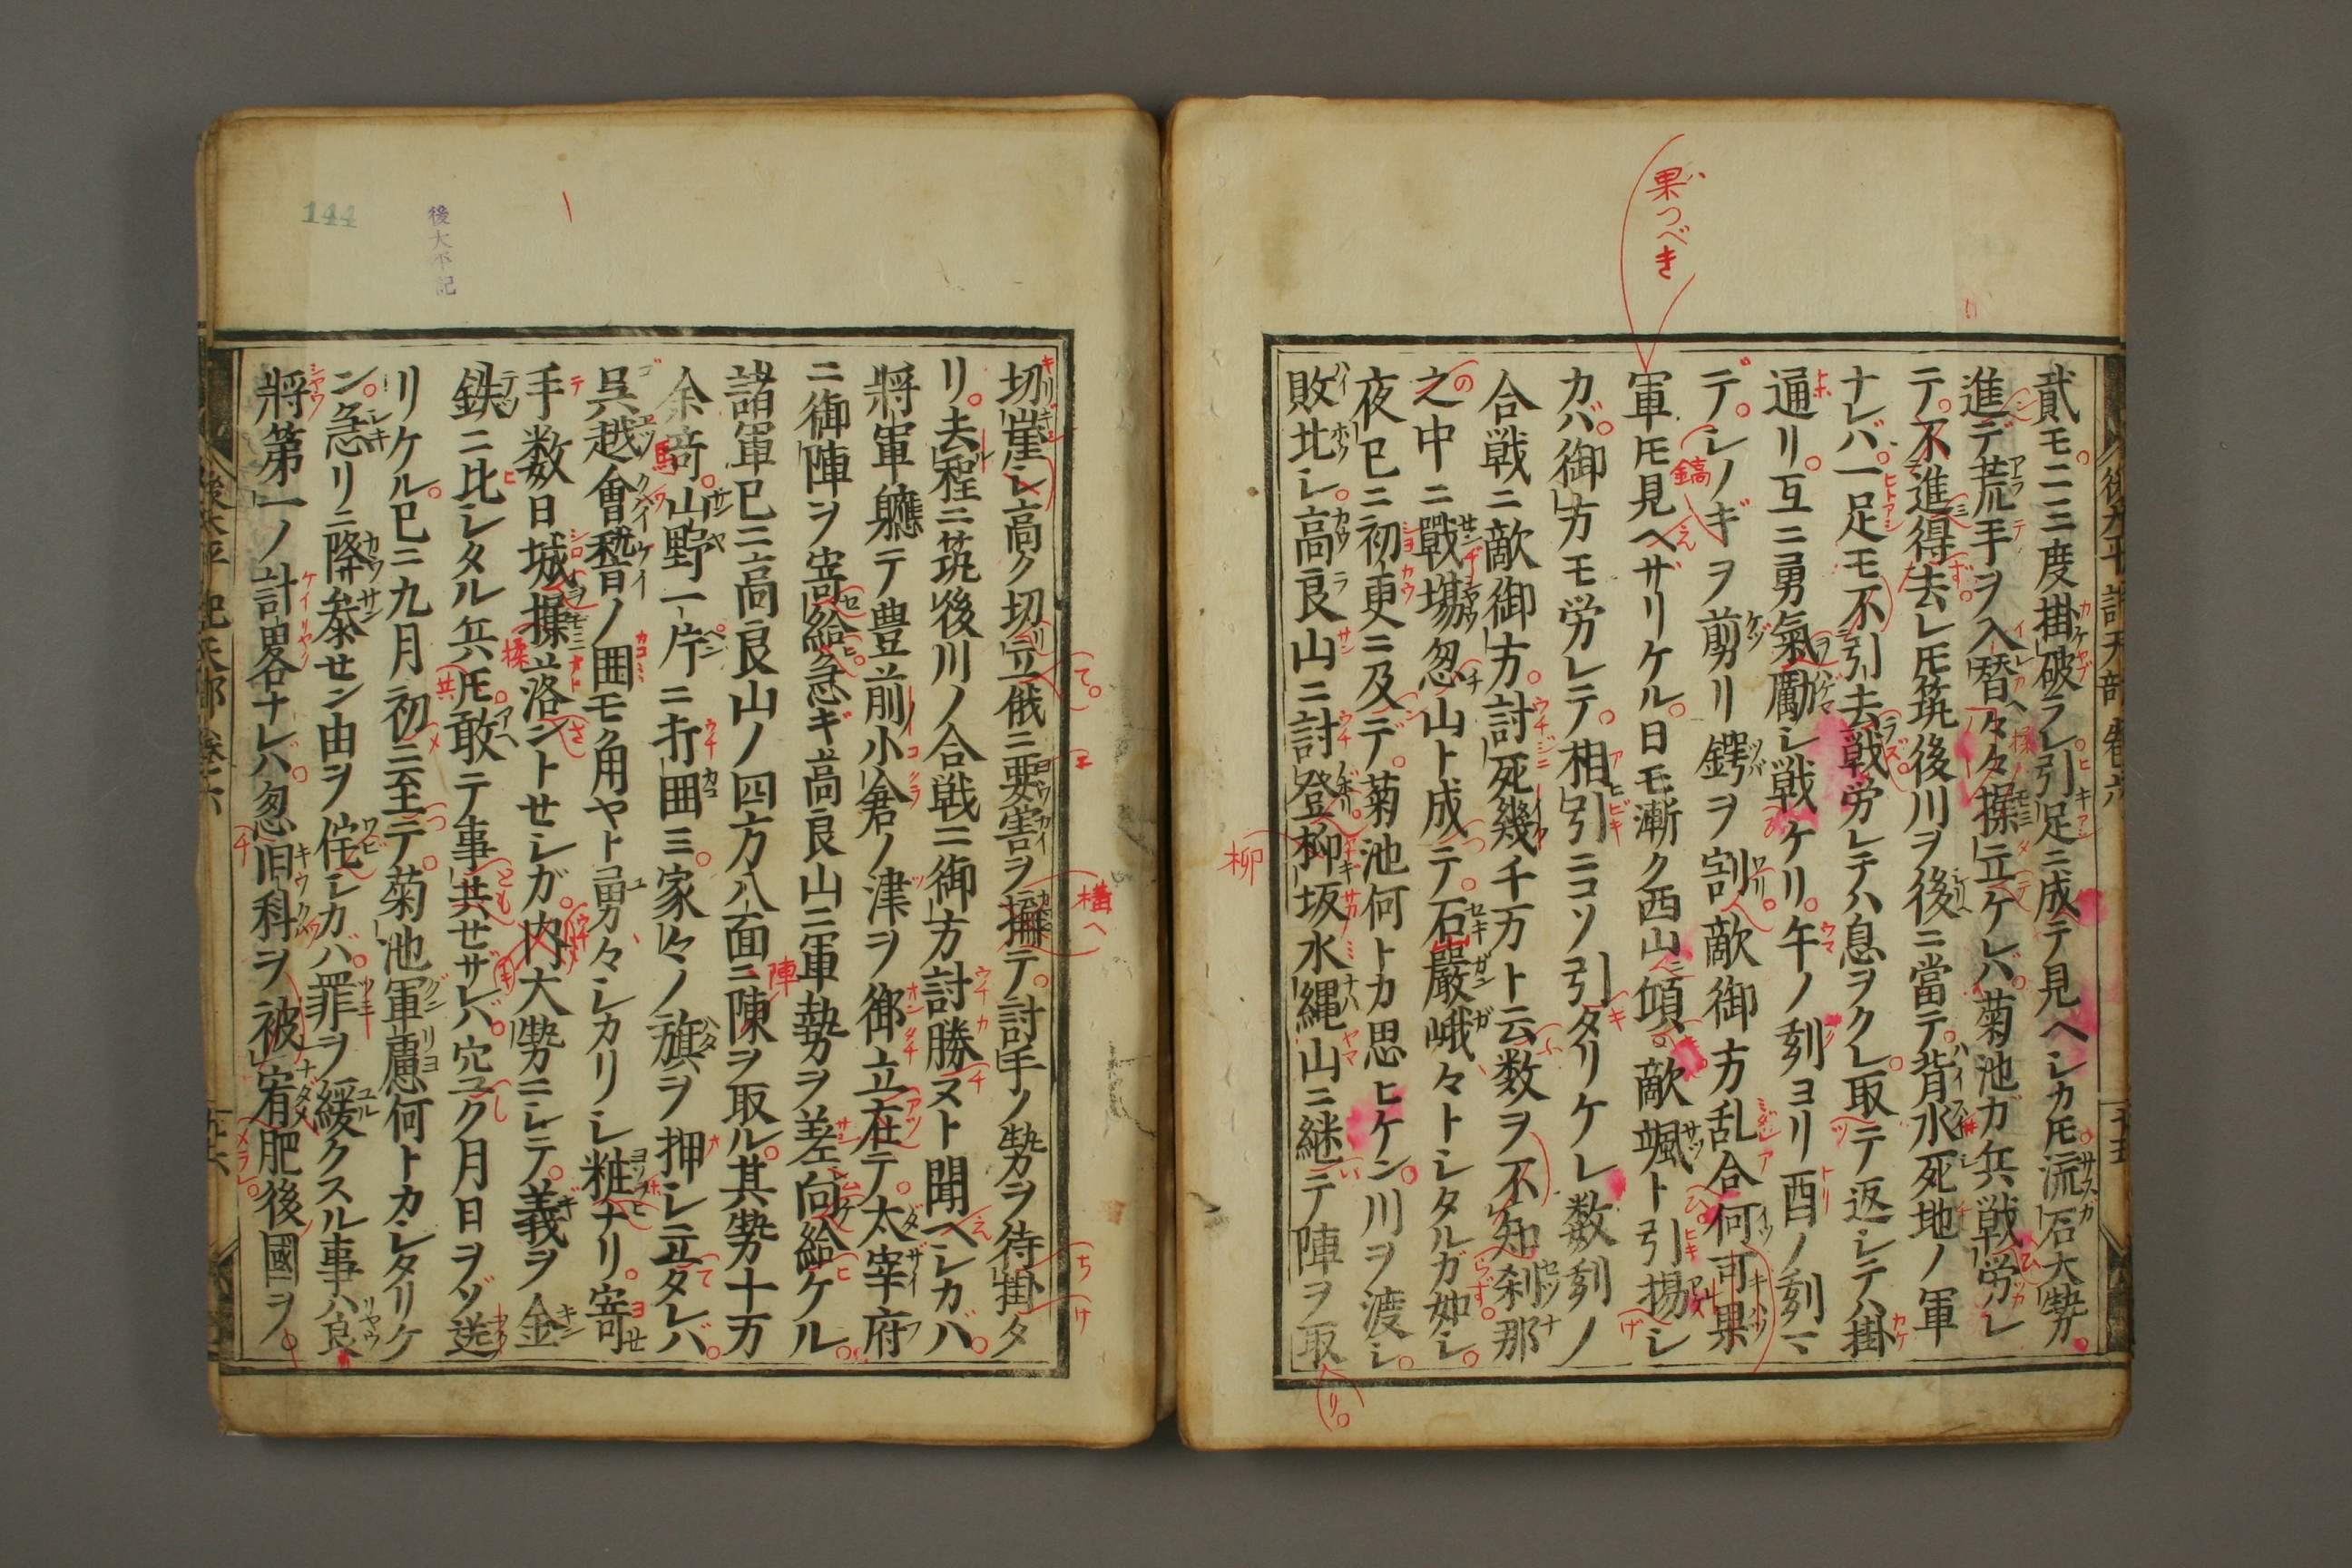 果つべき
貳モ二三度掛破ラレ引足ニ成テ見ヘシカ𪜈流石大勢
進デ荒手ヲ入替々々揉立ケレバ菊池ガ兵戦労レ
テ不進得去レ𪜈筑後川ヲ後ニ當テ背水死地ノ軍
ナレバ一足モ不引去戦労レテハ息ヲクレ取テ返シテハ掛
通リ互ニ勇氣勵シ戦ケリ午ノ刻ヨリ酉ノ刻マ
テシノギヲ剪リ鍔ヲ割敵御方乱合何可果
軍𪜈見ヘザリケル日モ漸ク西山ニ傾ハ敵颯ト引揚シ
カバ御方モ労レテ相引ニコソ引タリケレ数刻ノ
合戦ニ敵御方討死幾千万ト云数ヲ不知刹那
之中ニ戰塲忽山ト成テ石巖峨々トシタルガ如シ
夜已ニ初更ニ及デ菊池何トカ思ヒケン川ヲ渡シ
敗北シ高良山ニ討登柳坂水縄山ニ継テ陣ヲ取
切崖シ高ク切立俄ニ要害ヲ搆テ討手ノ勢ヲ待掛タ
リ去程ニ筑後川ノ合戦ニ御方討勝ヌト聞ヘシカバ
將軍軈テ豊前小倉ノ津ヲ御立在テ太宰府
ニ御陣ヲ寄給急ギ高良山ニ軍勢ヲ差向給ケル
諸軍已ニ高良山ノ四方八面ニ陳ヲ取ル其勢十万
余竒山野一片ニ打囲ミ家々ノ旗ヲ押シ立タレバ
呉越會稽ノ囲モ角ヤト勇々シカリシ粧ナリ寄
手数日城揉落ントセシガ内大勢ニシテ義ヲ金
鉄ニ比シタル兵𪜈敢テ事共セザレバ空ク月日ヲゾ送
リケル已ニ九月初ニ至テ菊池軍慮何トカシタリケ
ン急リニ降参セン由ヲ侘シカバ罪ヲ緩クスル事ハ良
將第一ノ計畧ナレバ忽旧科ヲ被宥肥後國ヲ
後太平記天部 卷六
後太平記
144